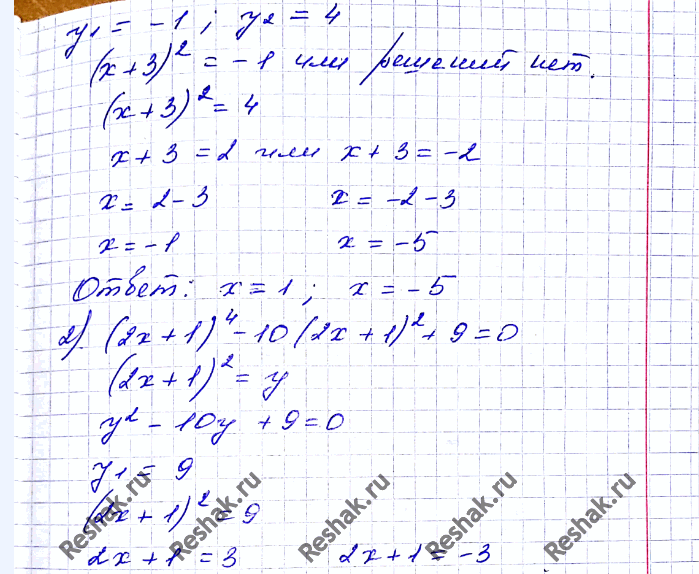 y₁ = -1 ; y₂ = 4
(x+3)² = -1 или решений нет.
(x+3)² = 4
x+3 = 2 или x+3 = -2
x = 2-3 x = -2-3
x = -1 x = -5
Ответ: x = 1 ; x = -5
2) (2x+1)⁴ - 10(2x+1)² + 9 = 0
(2x+1)² = y
y² - 10y + 9 = 0
y₁ = 9
(2x+1)² = 9
2x+1 = 3 2x+1 = -3
Reshak.ru Reshak.ru Reshak.ru Reshak.ru Reshak.ru